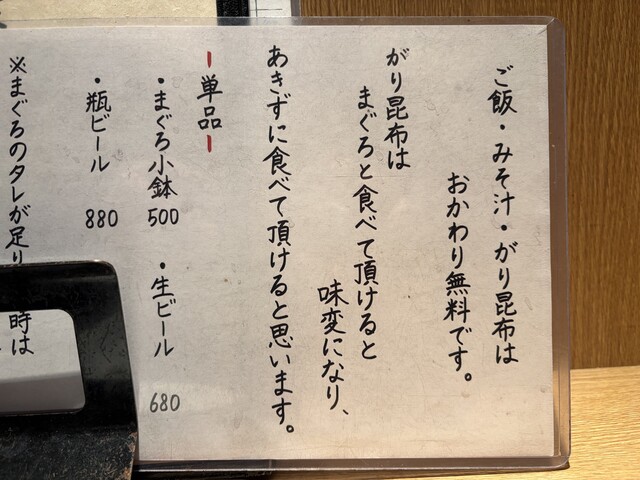 ご飯・みそ汁・がり昆布は
おかわり無料です。
がり昆布は
まぐろと食べて頂けると
味変になり、
あきずに食べて頂けると思います。
ー単品ー
・まぐろ小鉢 500
・生ビール 680
・瓶ビール 880
※まぐろのタレが足り
時は